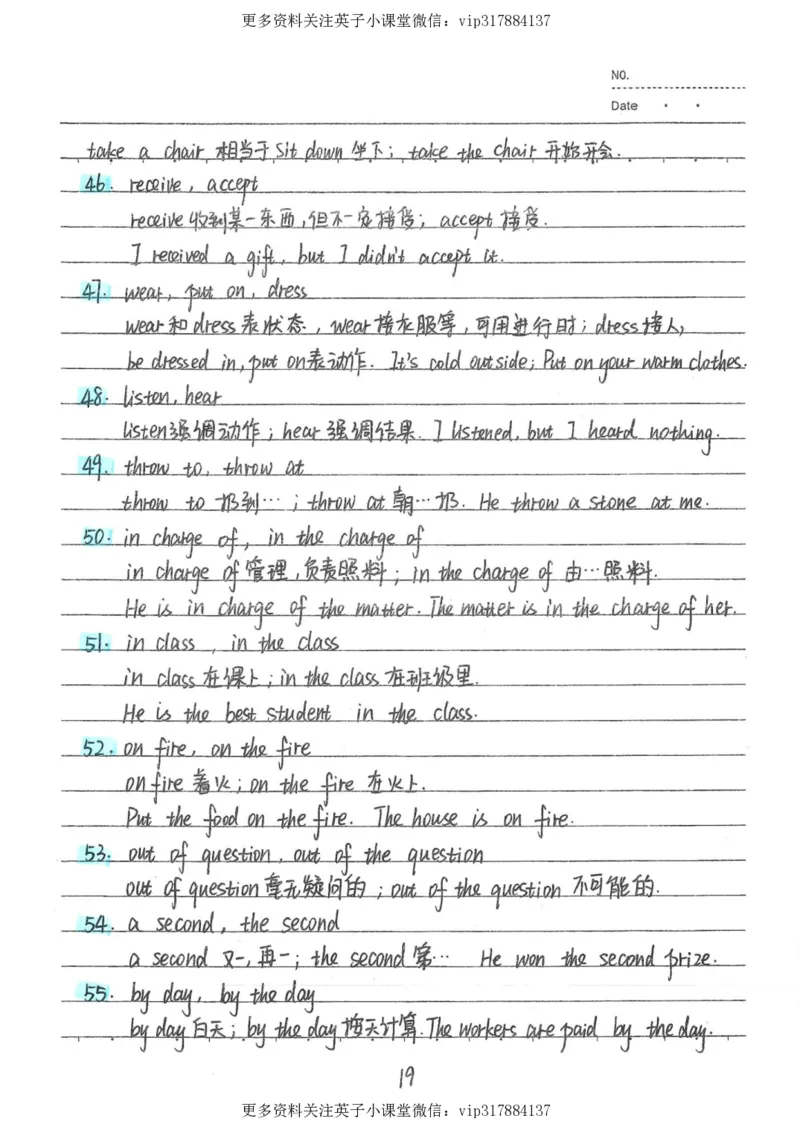 更多资料关注英子小课堂微信：vip317884137
NO.
Date · ·
take a chair 相当于 sit down 坐下；take the chair 开始开会.
46. receive, accept
receive 收到某一东西,但不一定接受；accept 接受.
I received a gift, but I didn't accept it.
47. wear, put on, dress
wear 和 dress 表状态, wear 接衣服等,可用进行时；dress 接人,
be dressed in, put on 表动作. It's cold outside; Put on your warm clothes.
48. listen, hear
listen 强调动作；hear 强调结果. I listened, but I heard nothing.
49. throw to, throw at
throw to 扔到…；throw at 朝…扔. He throw a stone at me.
50. in charge of, in the charge of
in charge of 管理,负责照料；in the charge of 由…照料.
He is in charge of the matter. The matter is in the charge of her.
51. in class, in the class
in class 在课上；in the class 在班级里.
He is the best student in the class.
52. on fire, on the fire
on fire 着火；on the fire 在火上.
Put the food on the fire. The house is on fire.
53. out of question, out of the question
out of question 毫无疑问的；out of the question 不可能的.
54. a second, the second
a second 又一,再一；the second 第… He won the second prize.
55. by day, by the day
by day 白天；by the day 按天计算. The workers are paid by the day.
19
更多资料关注英子小课堂微信：vip317884137